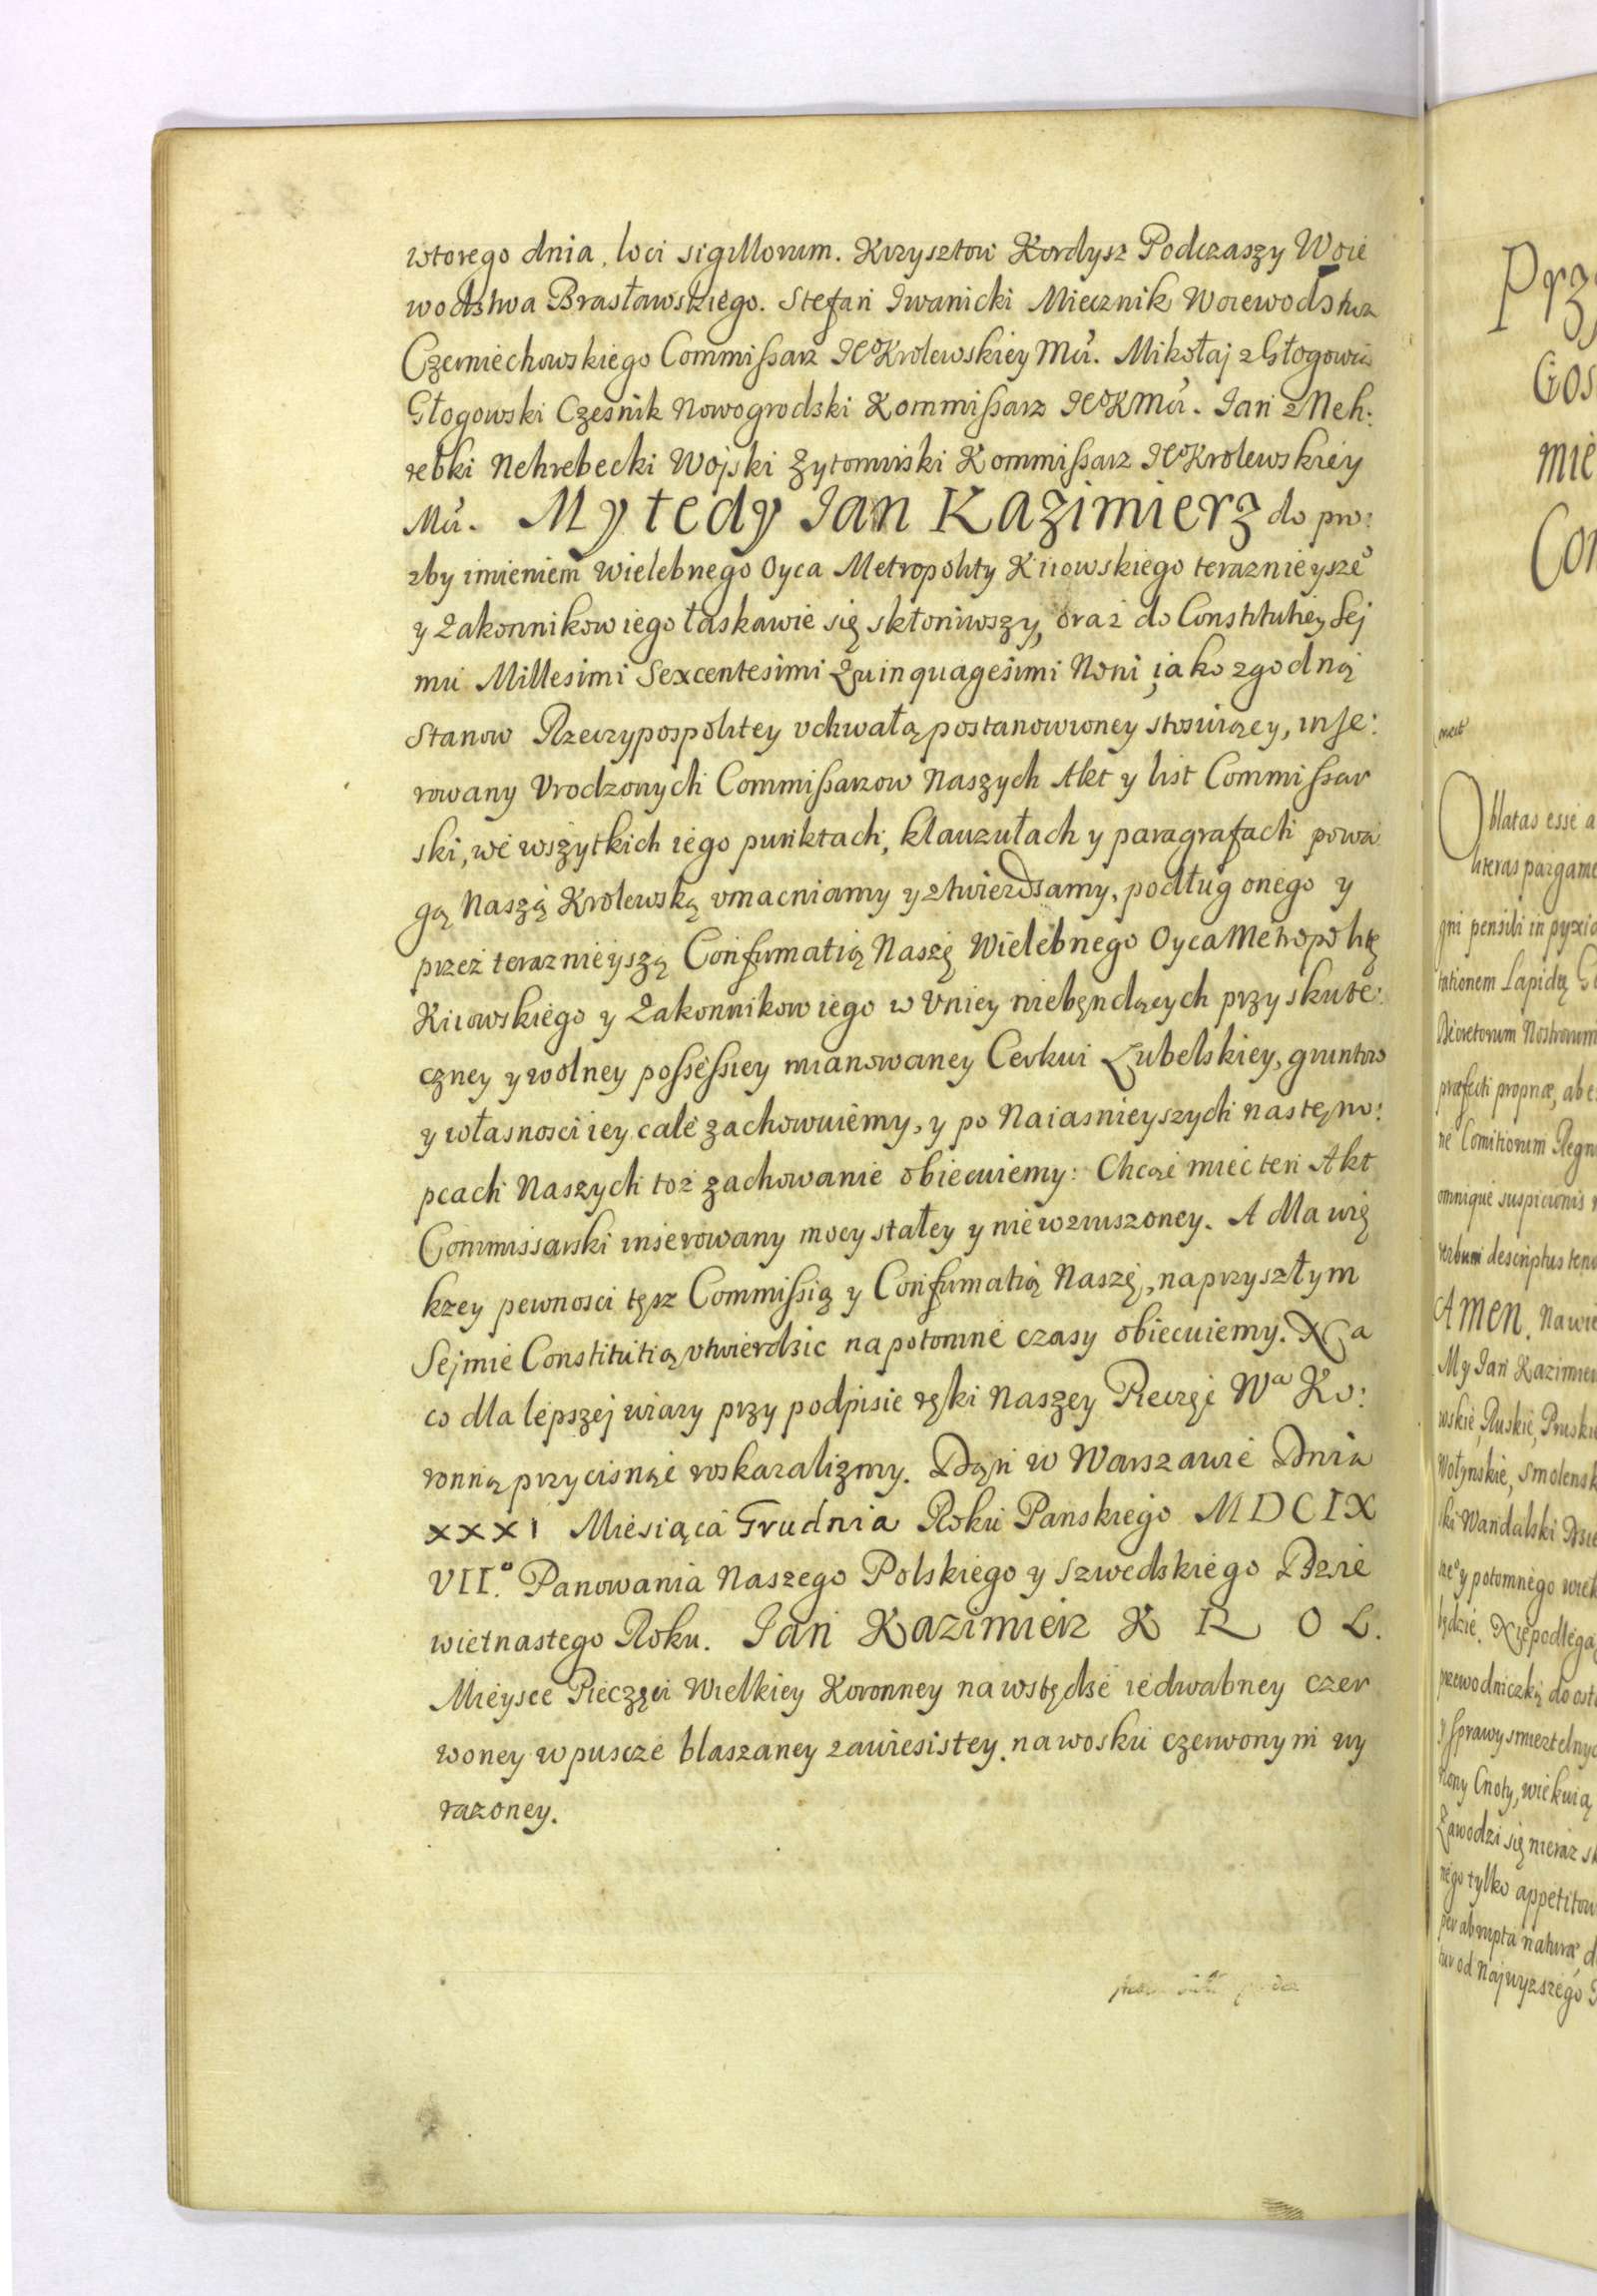 wtorego dnia. loci sigillorum. Krzysztow Kordysz Podczaszy Woie
wodstwa Brasławskiego. Stefan Iwanicki Miecznik Woiewodstwa
Czerniechowskiego Commissarz JKo Krolewskiey Mci. Mikołaj z Głogowia
Głogowski Czesnik Nowogrodski Kommissarz JKoKMci. Jan z Neh:
rebki Nehrebecki Wojski Zytomirski Kommissarz JKo Krolewskiey
Mci. My tedy Jan Kazimierz do pro:
zby imieniem wielebnego Oyca Metropolity Kiiowskiego teraznieysze°
y Zakonnikow iego łaskawie się skłoniwszy, oraz do Constitutiey Sej
mu Millesimi Sexcentesimi Quinquagesimi Noni, jako zgodną
Stanow Rzeczypospolitey vchwałą postanowioney stosuiący, inse:
rowany Vrodzonych Commissarzow Naszych Akt y list Commissar
ski, we wszytkich iego punktach, klauzułach y paragrafach powa
gą Naszą Krolewską vmacniamy y ztwierdzamy, podług onego y
przez teraznieyszą Confirmatią Naszę Wielebnego Oyca Metropolitę
Kiiowskiego y Zakonnikow iego w Vniey niebęndących przy skute:
czney y wolney possessiey mianowaney Cerkui Lubelskiey, gruntow
y własnosci iey cale zachowuiemy, y po Naiasnieyszych następo:
pcach Naszych toż zachowanie obiecuiemy: Chcąc mieć ten Akt
Commissarski inserowany mocy stałey y niewzruszoney. A dla wię
kzey pewnosci tęsz Commissią y Confirmatią Naszę, na przyszłym
Sejmie Constitutią vtwierdzic na potomne czasy obiecuiemy. Na
co dla lepszej wiary przy podpisie ręki Naszey Pieczęć Wą Ko:
ronną przycisnąć roskazalizmy. Dąn w Warszawie Dnia
XXXI Miesiąca Grudnia Roku Panskiego MDCIX
VII.° Panowania Naszego Polskiego y Szwedskiego Dzie
wietnastego Roku. Jan Kazimierz K R O L.
Mieysce Pieczęci Wielkiey Koronney na wstędze iedwabney czer
woney w puscze blaszaney zawiesistey, na wosku czerwonym wy
razoney.
Prz
Gos
mie
Con
Oblatas esse a
literas pargame
gni pensili in pyxid
Decretorum Nostrorum
præfecti propriæ, ab e
ne Comitiorum Regn
omnique suspicionis
verbum descriptus teno
Amen. Na wie
My Jan Kazimier
wskie, Ruskie, Prusk
Wołynskie, Smolensk
ski Wandalski Dzie
ne° y potomnego wiek
będzie. Niepodlega
przewodniczką do ost
y sprawy smiertelnyc
rony Cnoty, wiekuią
Zawodzi się nieraz sk
nego tylko appetitow
per abrupta naturæ, d
tur od Najwyzszego